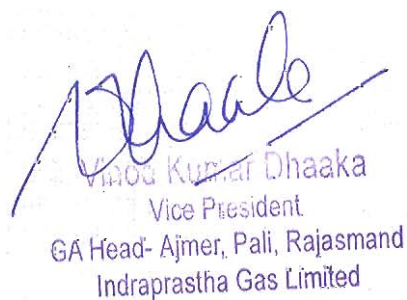 Dhaaka
Vinod Kumar Dhaaka
Vice President
GA Head- Ajmer, Pali, Rajasmand
Indraprastha Gas Limited